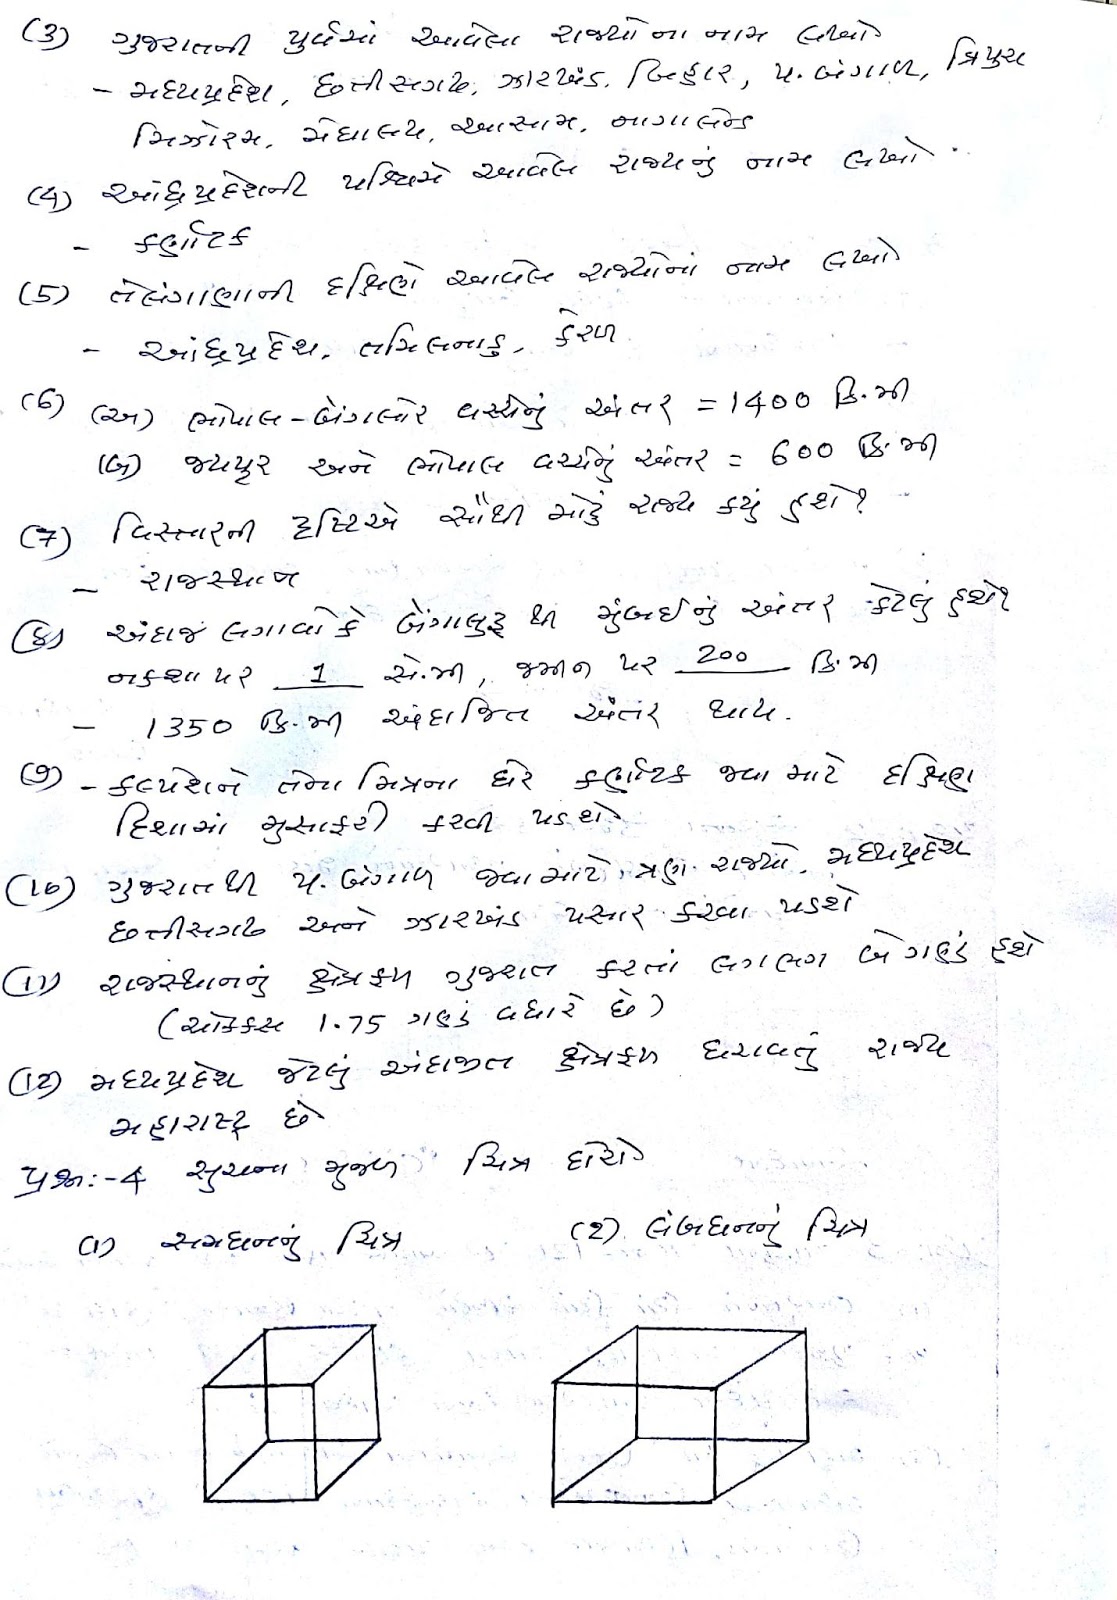 (3) ગુજરાતની પુર્વમાં આવેલા રાજ્યોના નામ લખો
- મધ્યપ્રદેશ, છત્તીસગઢ, ઝારખંડ, બિહાર, પ. બંગાળ, ત્રિપુરા
મિઝોરમ, મેઘાલય, આસામ, નાગાલેન્ડ
(4) આંધ્રપ્રદેશની પશ્ચિમે આવેલ રાજ્યનું નામ લખો.
- કર્ણાટક
(5) તેલંગાણાની દક્ષિણે આવેલ રાજ્યોનાં નામ લખો
- આંધ્રપ્રદેશ, તમિલનાડુ, કેરળ
(6) (અ) ભોપાલ-બેંગલોર વચ્ચેનું અંતર = 1400 કિ.મી
(બ) જયપૂર અને ભોપાલ વચ્ચેનું અંતર = 600 કિ.મી
(7) વિસ્તારની દ્રષ્ટિએ સૌથી મોટું રાજ્ય કયું હશે?
- રાજસ્થાન
(8) અંદાજ લગાવો કે બેંગાલુરૂ થી મુંબઈનું અંતર કેટલું હશે?
નકશા પર 1 સે.મી, જમીન પર 200 કિ.મી
- 1350 કિ.મી અંદાજિત અંતર થાય.
(9) - કલ્પેશને તેના મિત્રના ઘરે કર્ણાટક જવા માટે દક્ષિણ
દિશામાં મુસાફરી કરવી પડશે
(10) ગુજરાતથી પ. બંગાળ જવા માટે ત્રણ રાજ્યો, મધ્યપ્રદેશ
છત્તીસગઢ અને ઝારખંડ પસાર કરવા પડશે
(11) રાજસ્થાનનું ક્ષેત્રફળ ગુજરાત કરતાં લગભગ બે ગણું હશે
(ચોક્કસ 1.75 ગણું વધારે છે)
(12) મધ્યપ્રદેશ જેટલું અંદાજીત ક્ષેત્રફળ ધરાવતું રાજ્ય
મહારાષ્ટ્ર છે
પ્રશ્ન:-4 સુચના મુજબ ચિત્ર દોરો
(1) સમઘનનું ચિત્ર (2) લંબઘનનું ચિત્ર